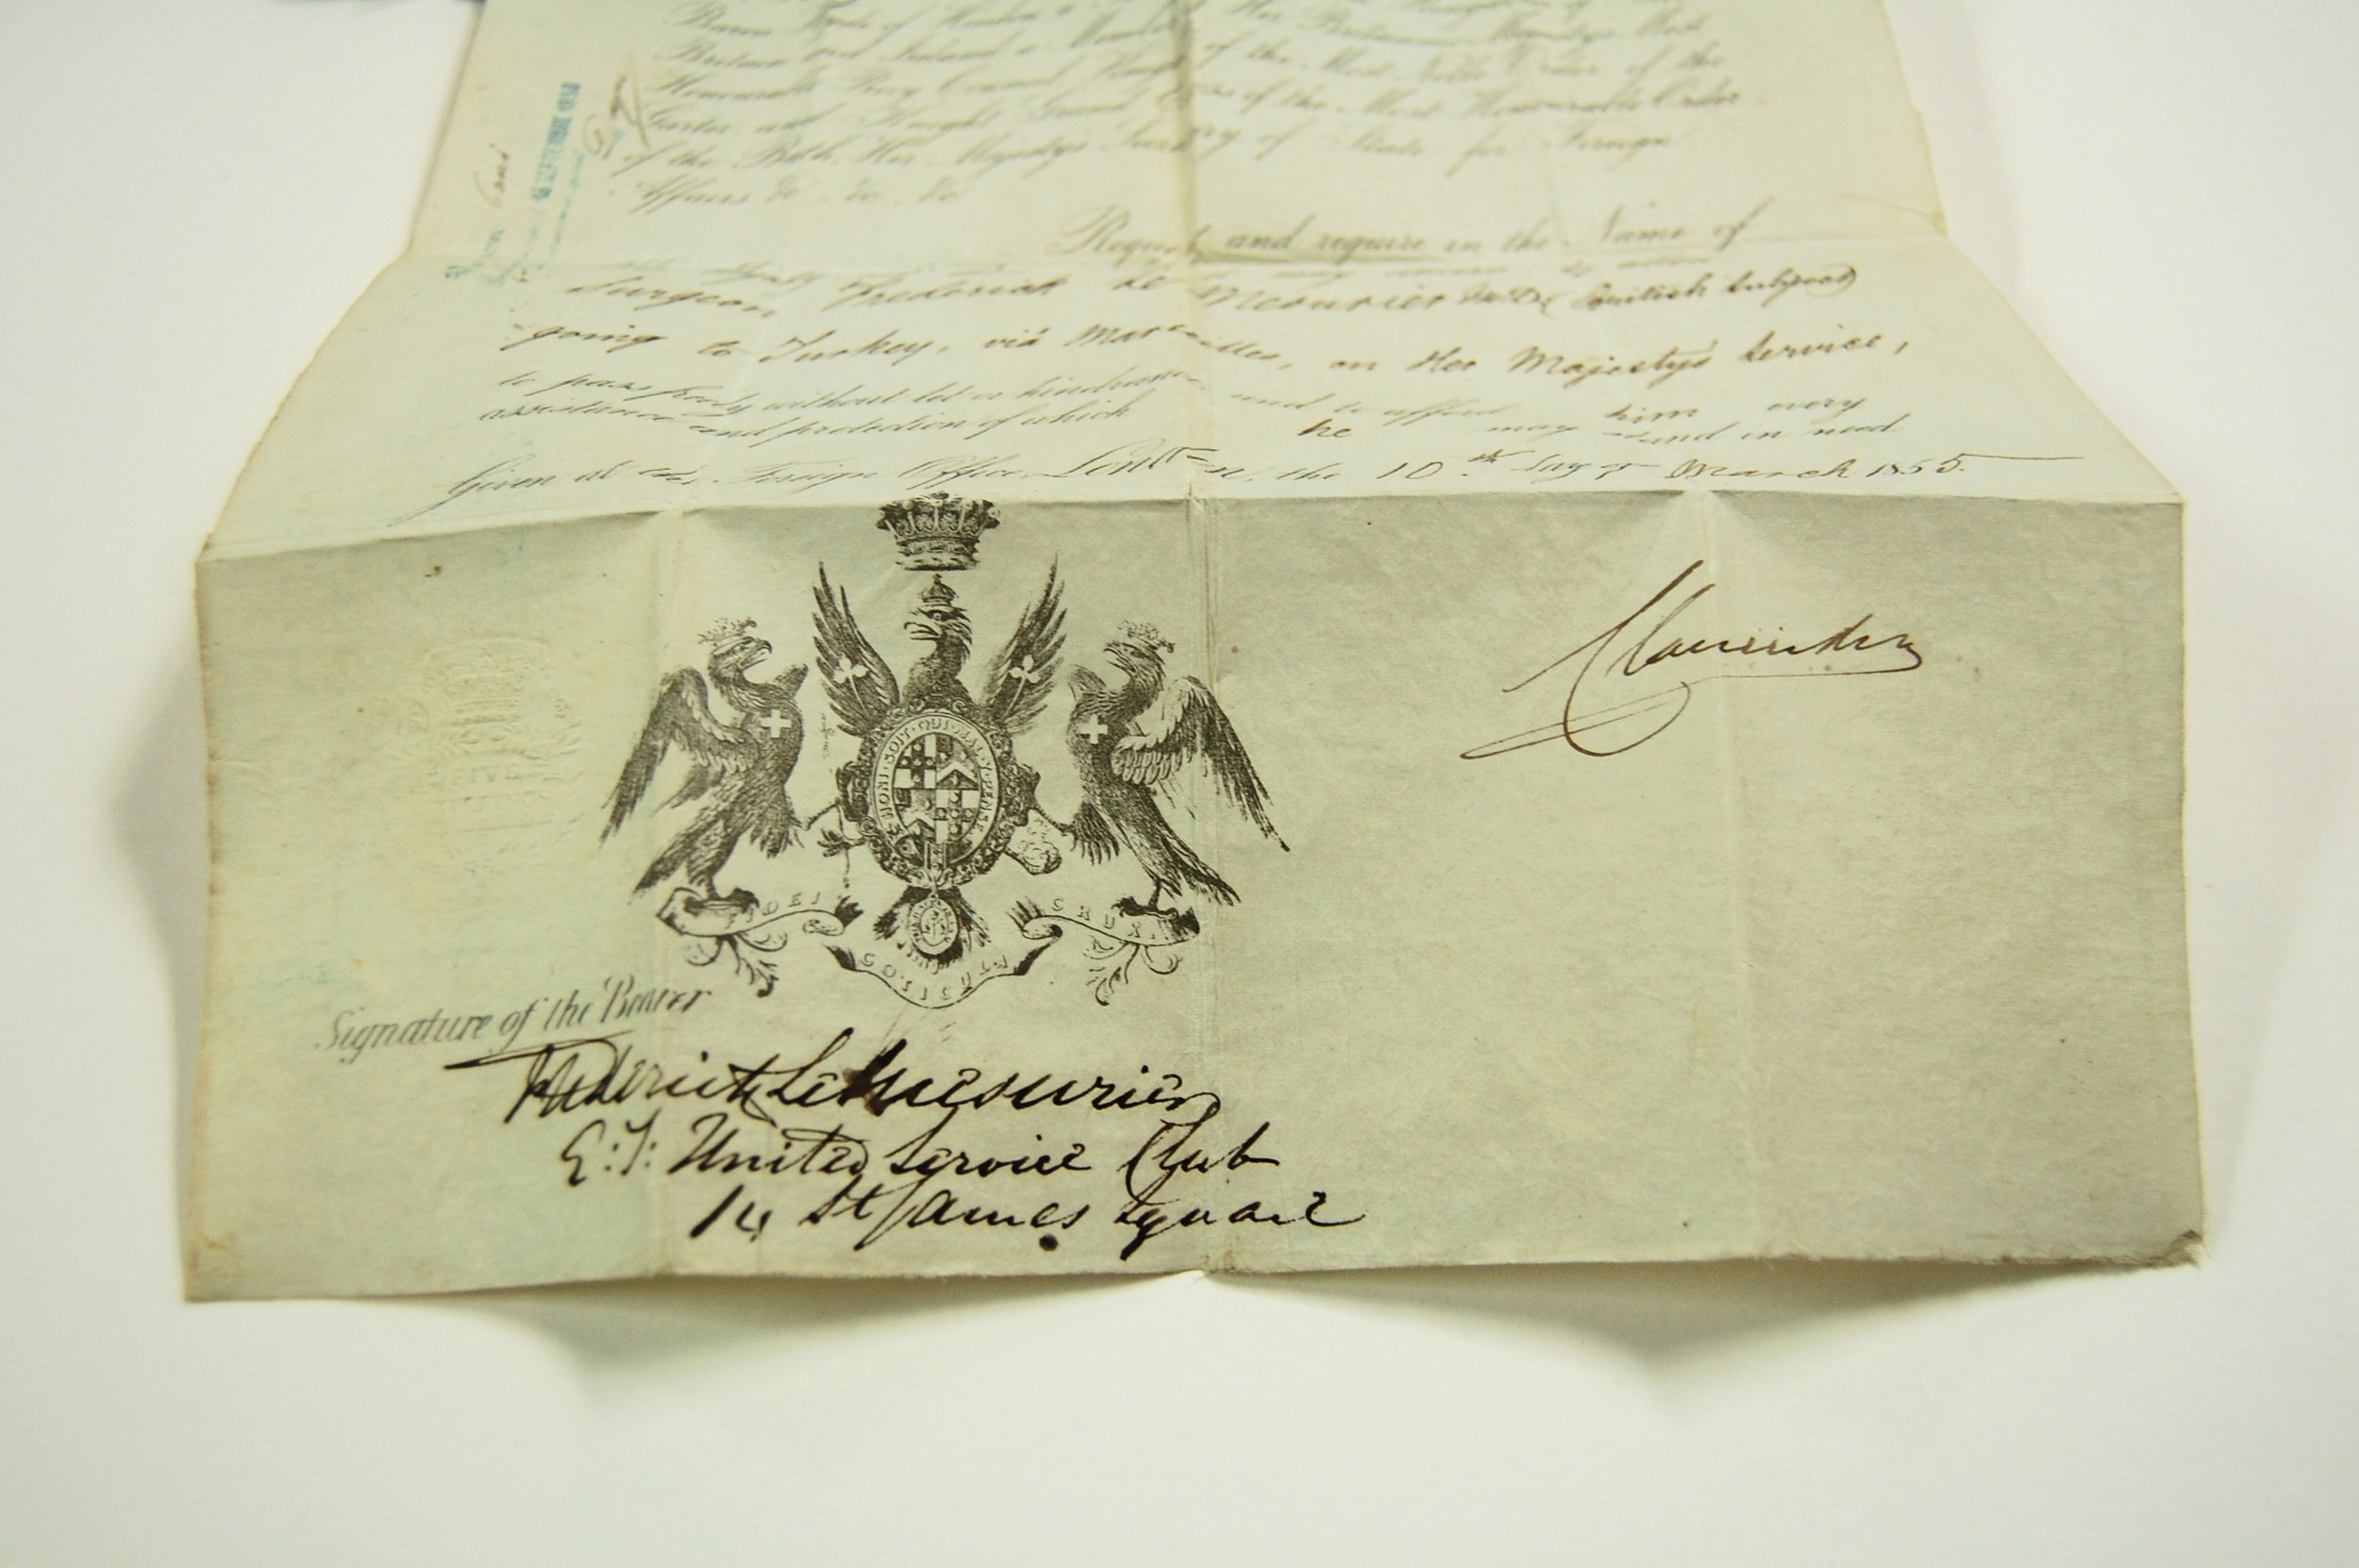 Britain and Ireland a Member of Her Britannic Majesty's Most
Honourable Privy Council, Knight of the Most Noble Order of the
Garter and Knight Grand Cross of the Most Honourable Order
of the Bath, Her Majesty's Secretary of State for Foreign
Affairs &c. &c. &c.
Request and require in the Name of
Surgeon Frederick Le Mesurier (British subject)
going to Turkey, via Marseilles, on Her Majesty's Service,
to pass freely without let or hindrance and to afford him every
assistance and protection of which he may stand in need
Given at the Foreign Office, London, the 10th day of March 1855.
Clarendon
HONI·SOIT·QUI·MAL·Y·PENSE
FIVE
FIDEI COTICULA CRUX
Signature of the Bearer
Frederick LeMesurier
E:I: United Service Club
14 St James Square